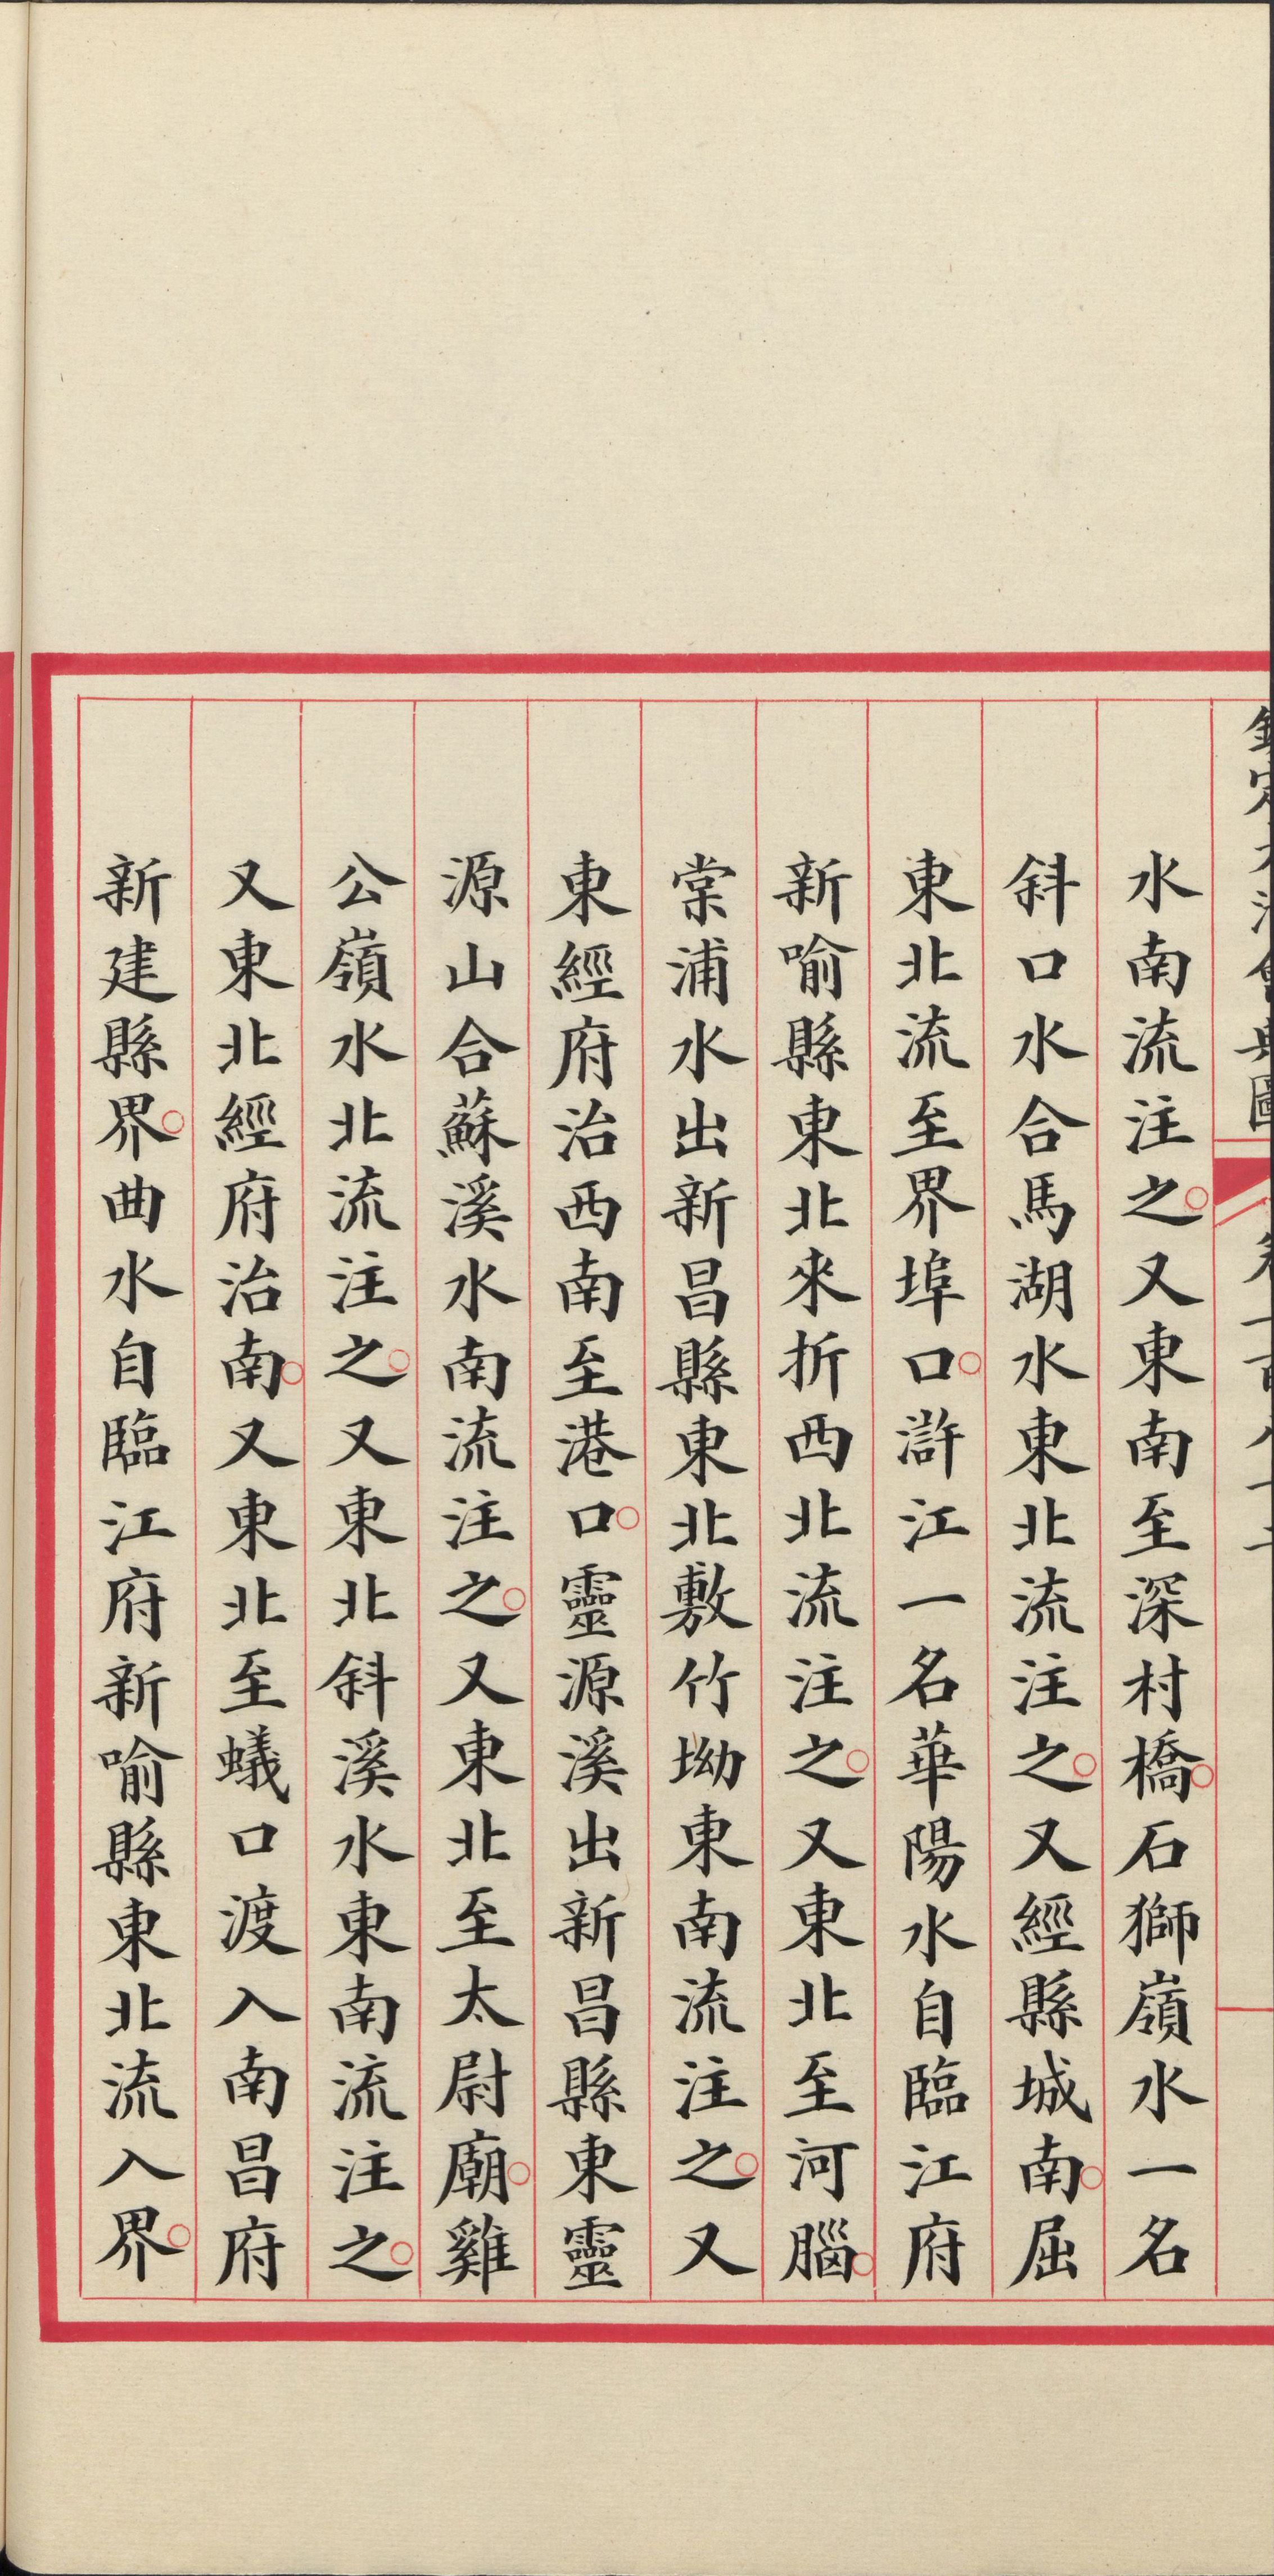 水南流注之。又東南至深村橋。石獅嶺水一名
斜口水合馬湖水東北流注之。又經縣城南。屈
東北流至界埠口。滸江一名華陽水自臨江府
新喻縣東北來折西北流注之。又東北至河腦。
棠浦水出新昌縣東北敷竹坳東南流注之。又
東經府治西南至港口。靈源溪出新昌縣東靈
源山合蘇溪水南流注之。又東北至太尉廟。雞
公嶺水北流注之。又東北斜溪水東南流注之。
又東北經府治南。又東北至蟻口渡入南昌府
新建縣界。曲水自臨江府新喻縣東北流入界。